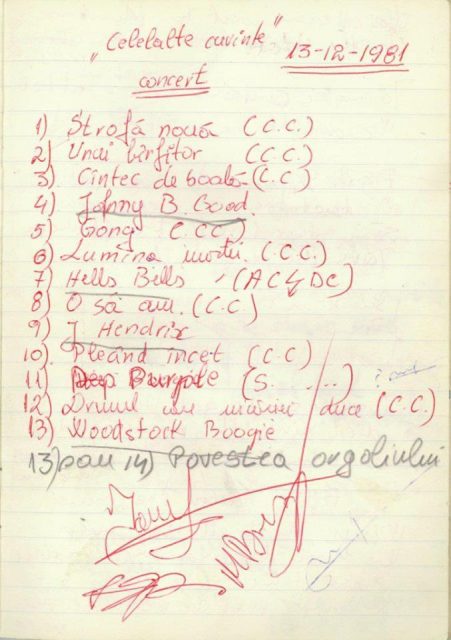 "Celelalte cuvinte" 13-12-1981
concert
1) Strofă nouă (C.C.)
2) Unui bîrfitor (C.C.)
3) Cîntec de boală (C.C)
4) Johnny B. Good.
5) Gong (.CC.)
6) Lumina (C.C.)
7) Hells Bells (AC↯DC)
8) O să am. (C.C)
9) J. Hendrix
10) Plecând incet (C.C)
11) Deep Purple (S. ....)
12) Drumul duce (C.C.)
13) Woodstock Boogie
13) sau 14) Povestea orgoliului